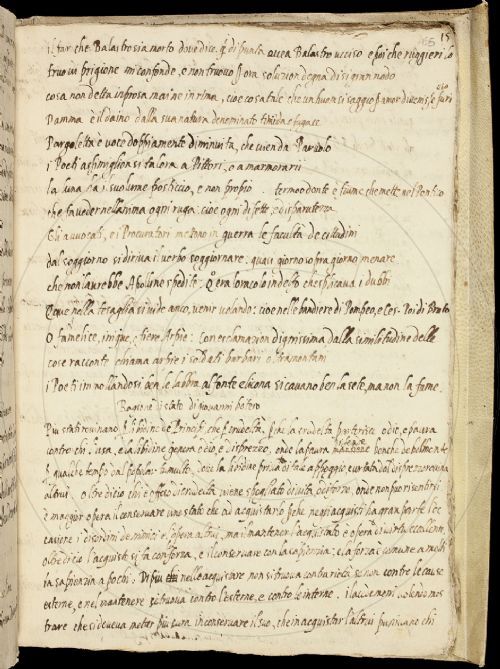 15
il far che Balastro sia morto dove dice q. di punta avea Balastro ucciso e poi che ruggieri lo
truovi prigione mi confonde, e non truovo solution degna di si gran nodo
cosa non detta in prosa mai ne in rima, cioe cosa tale che un huom si saggio amor divenisse furi
Damma e il daino dalla sua natura denominato timida e fugace
Pargoletta e voce doppiamente diminuita, che vien da Parvolo
i Poeti assimigliansi talora a Pittori, e a marmorarii
la luna ha i suo lume posticcio, e non propio. termoodonte e fiume che mette nel Ponto
che fa veder nell anima ogni ruga: cioe ogni difetto, e disparutezza
Gli avvocati, e i Procuratori metono in guerra le faculta de cittadini
dal soggiorno si diriva il verbo soggiornare, quasi giorno sopra giorno menare
che non l'avrebbe Apolline spediti: Q. era l'oracolo in delfo che esplicava i dubbi
Que nella Tessaglia si vide anco, venir volando: cioe nelle bandiere di Pompeo, e Ces. Poi di Bruto
O famelice, inique, e fiere Arpie: con esclamazion dignissima dalla similitudine delle
cose racconte chiama arpie i soldati barbari oltramontani
i Poeti immollandosi ben, e labbra al fonte elicona si cavano ben la sete, ma non la fame
Ragione di stato di giovanni botero
Piu stati ruinano libidine de Principi che crudelta. la crudelta partorisce odio, e paura
contro chi l'usa, e la libidine genera odio e disprezzo, onde la paura benche debolmente
qualche tempo dove la libidine priva di tale appoggio e
altrui. oltre di cio chi e offeso di crudelta, viene spogliato di vita, o di forze, onde non puo risentirsi
e maggior opera il conservare uno stato che ad acquistarlo che negli acquisti ha gran parte l'oc
casione i disordini de nimici e l'opera altrui, ma il mantener l'acquistato e opera di virtu eccellente
oltre di cio l'acquisto si fa con forza, e il conservare con la sapienzia: e la forza e comune a molti
la sapienzia a pochi. Di piu nell acquistare non si truova contrarieta se non contro le cause
esterne, e nel mantenere si truova contro l'esterne, e contro le interne. i lacedemoni volendo mos
trare che si deveva metter piu cura in conservare il suo, che in acquistar l'altrui punivano chi